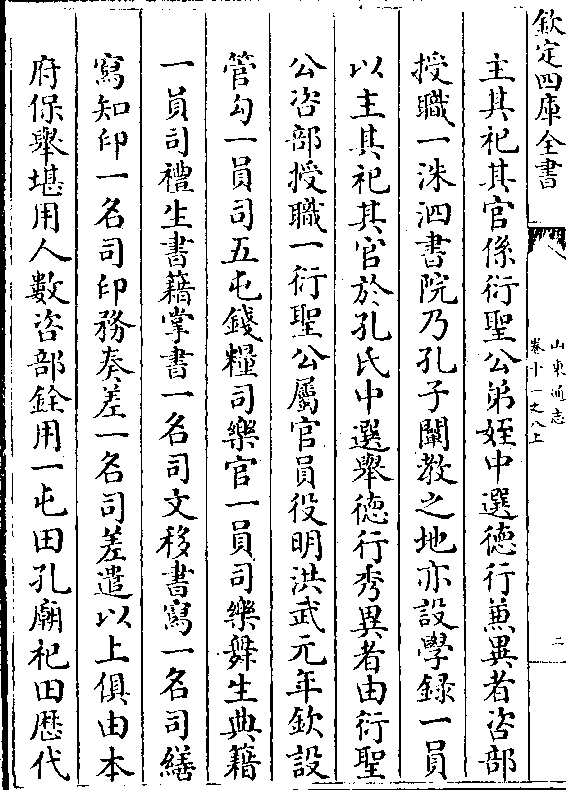 欽定四庫全書
山東通志
卷十一之八上
二
主其祀其官係衍聖公弟姪中選德行兼異者咨部
授職一洙泗書院乃孔子闡教之地亦設學錄一員
以主其祀其官於孔氏中選舉徳行秀異者由衍聖
公咨部授職一衍聖公屬官員役明洪武元年欽設
管勾一員司五屯錢糧司樂官一員司樂舞生典籍
一員司禮生書籍掌書一名司文移書寫一名司繕
寫知印一名司印務奏差一名司差遣以上俱由本
府保舉堪用人數咨部銓用一屯田孔廟祀田歴代